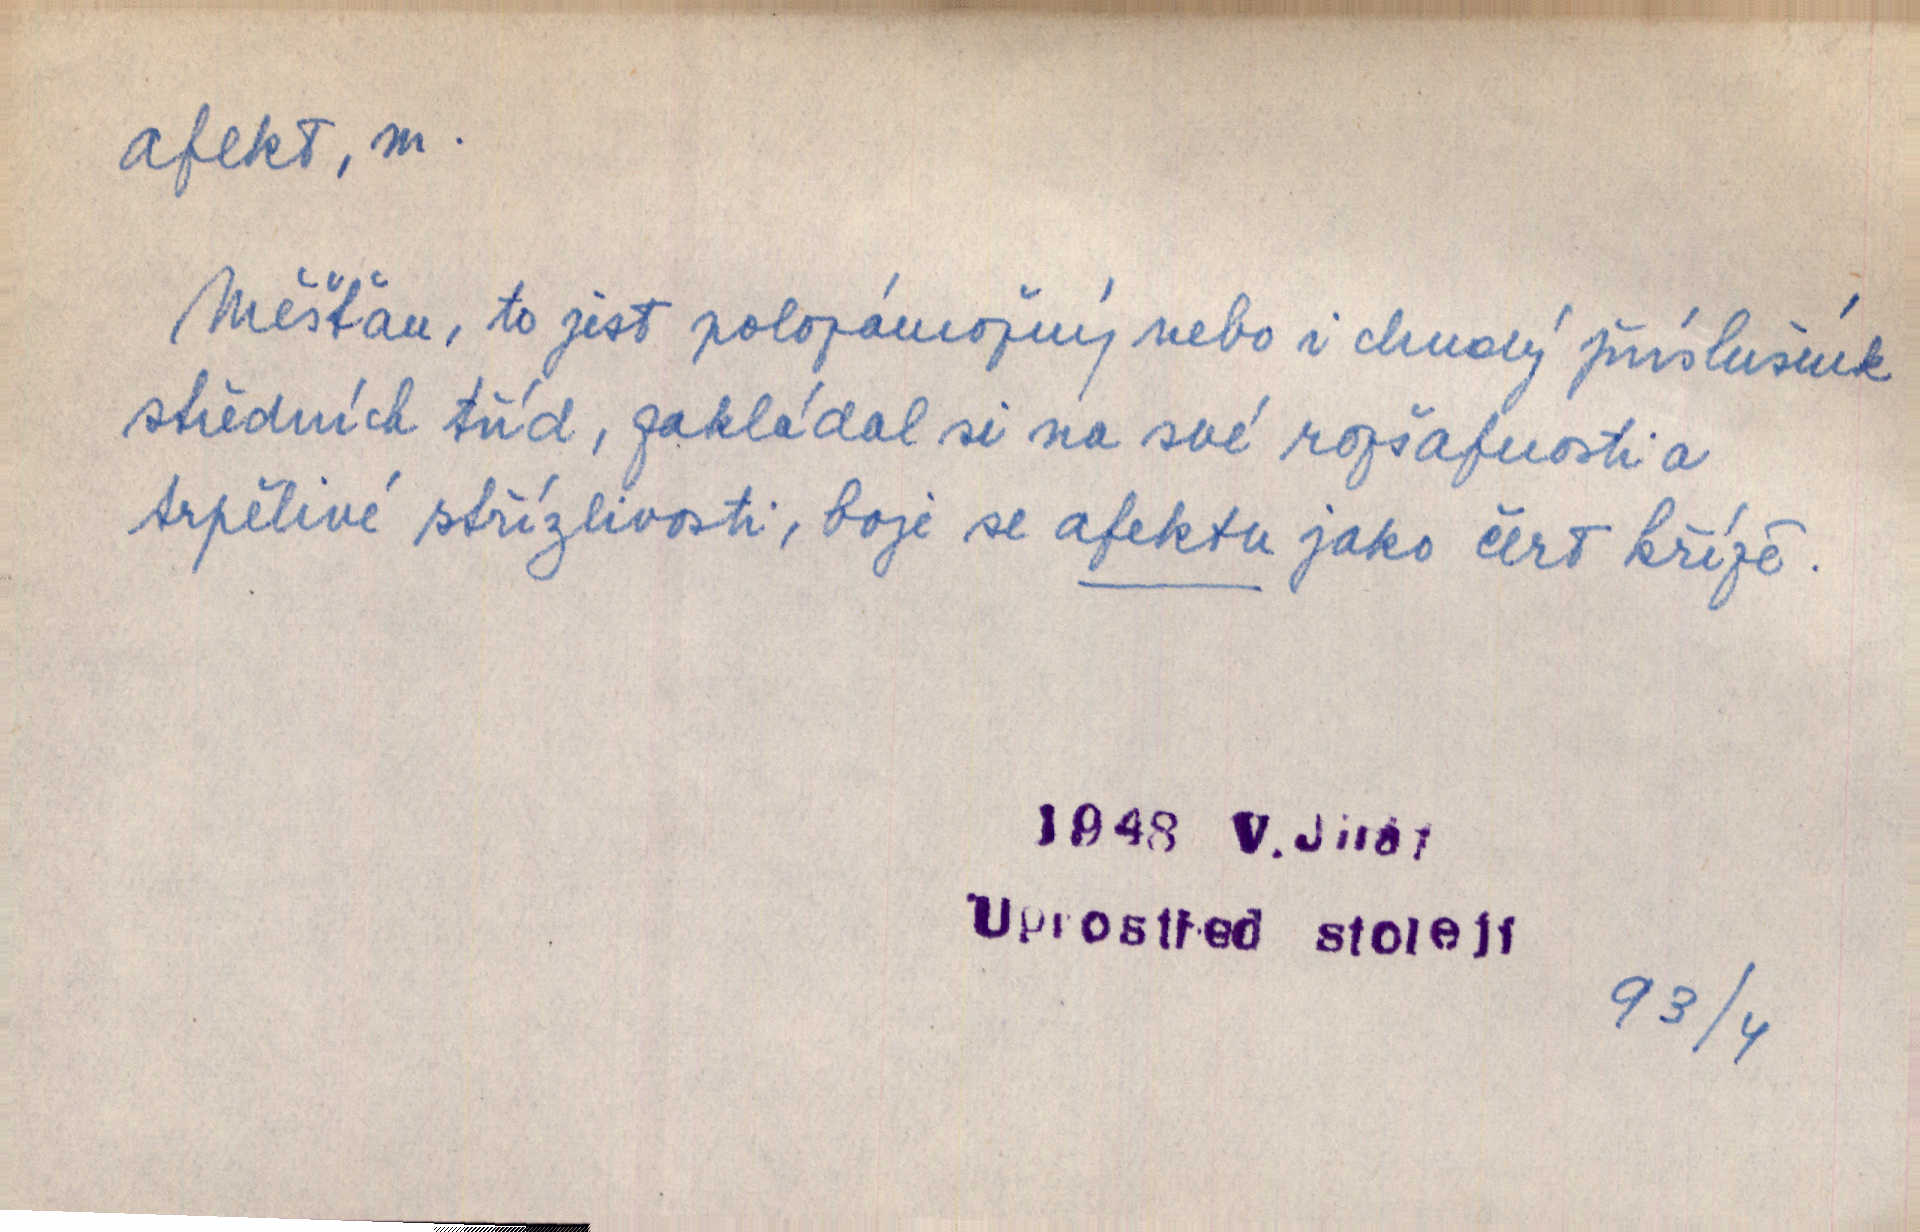 afekt, m.
Měšťan, to jest polozámožný nebo i chudý příslušník
středních tříd, zakládal si na své rozšafnosti a
trpělivé střízlivosti, boje se afektu jako čert kříže.
1948 V. Jirát
Uprostřed století
93/4